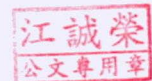 江誠榮
公文專用章